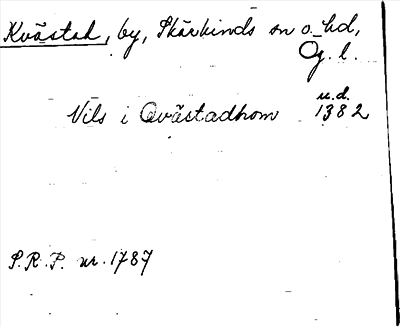 Kvästad, by, Skärkinds sn o. hd,
Ög. l.
u.d.
Nils i Qvästadhom 1382
S.R.P. nr. 1787